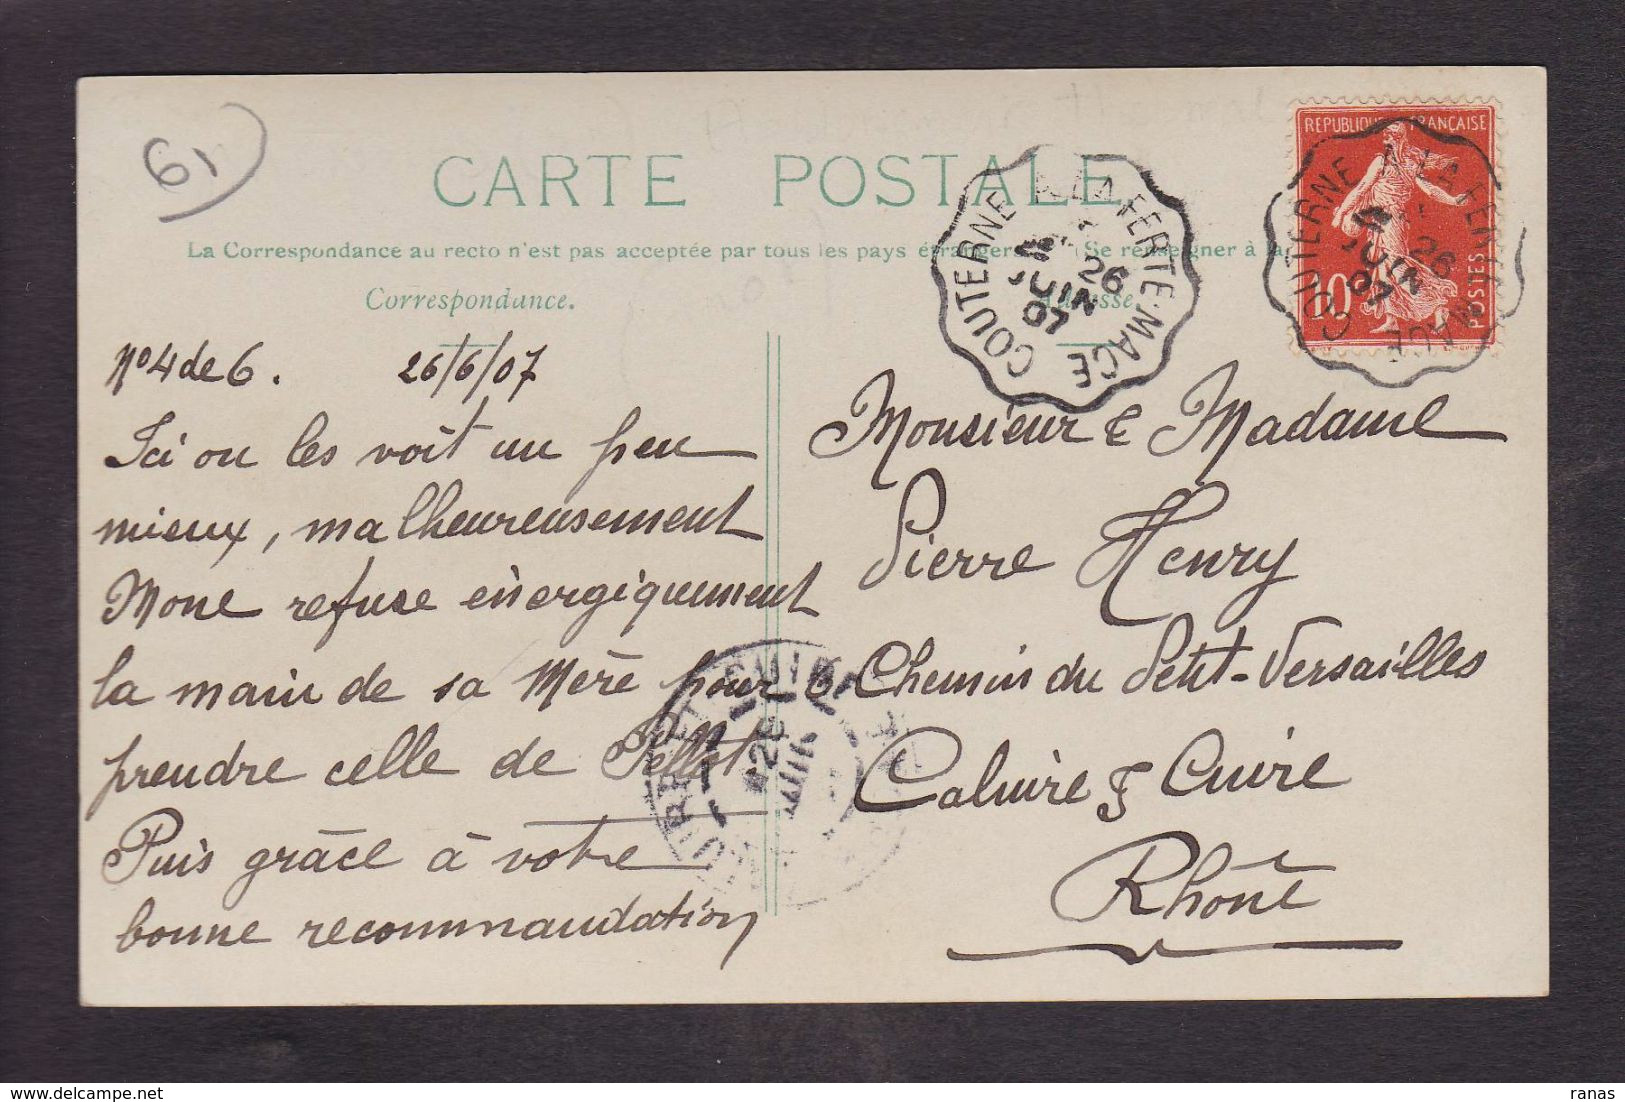 61
CARTE POSTALE
La Correspondance au recto n'est pas acceptée par tous les pays étrangers Se renseigner à la
Correspondance.
Adresse
REPUBLIQUE FRANÇAISE
10
POSTES
COUTERNE A LA FERTE-MACE
26
JUIN
07
COUTERNE A LA FERTE MACE
26
JUIN
07
No 4 de 6. 26/6/07
Ici on les voit un peu
mieux, malheureusement
Mone refuse énergiquement
la main de sa Mère pour
prendre celle de Pellet.
Puis grâce à votre
bonne recommandation
Monsieur & Madame
Pierre Henry
6 Chemin du Petit-Versailles
Caluire & Cuire
Rhône
ranas